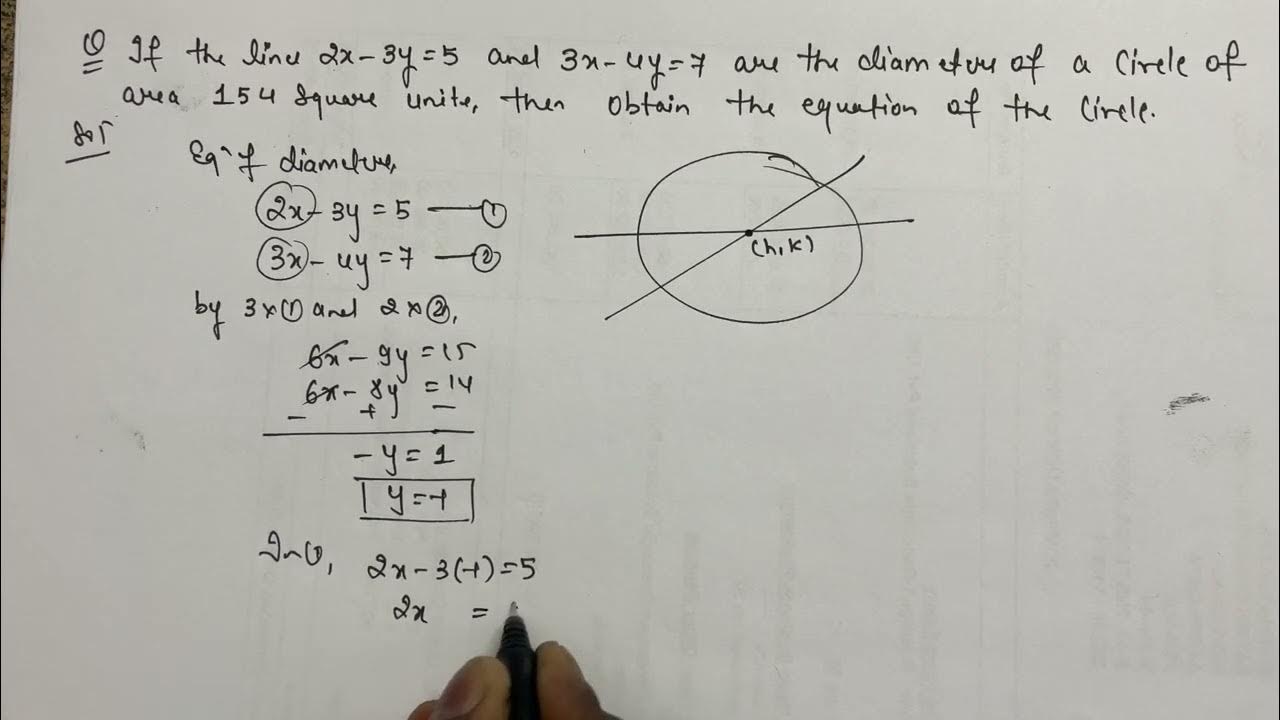 Q If the line 2x-3y=5 and 3x-4y=7 are the diameters of a circle of
area 154 square units, then obtain the equation of the circle.
Sol
Eqn of diameters,
2x-3y=5 —①
3x-4y=7 —②
(h,k)
by 3×① and 2×②,
6x-9y=15
6x-8y=14
- + -
-y=1
y=-1
In ①, 2x-3(-1)=5
2x =